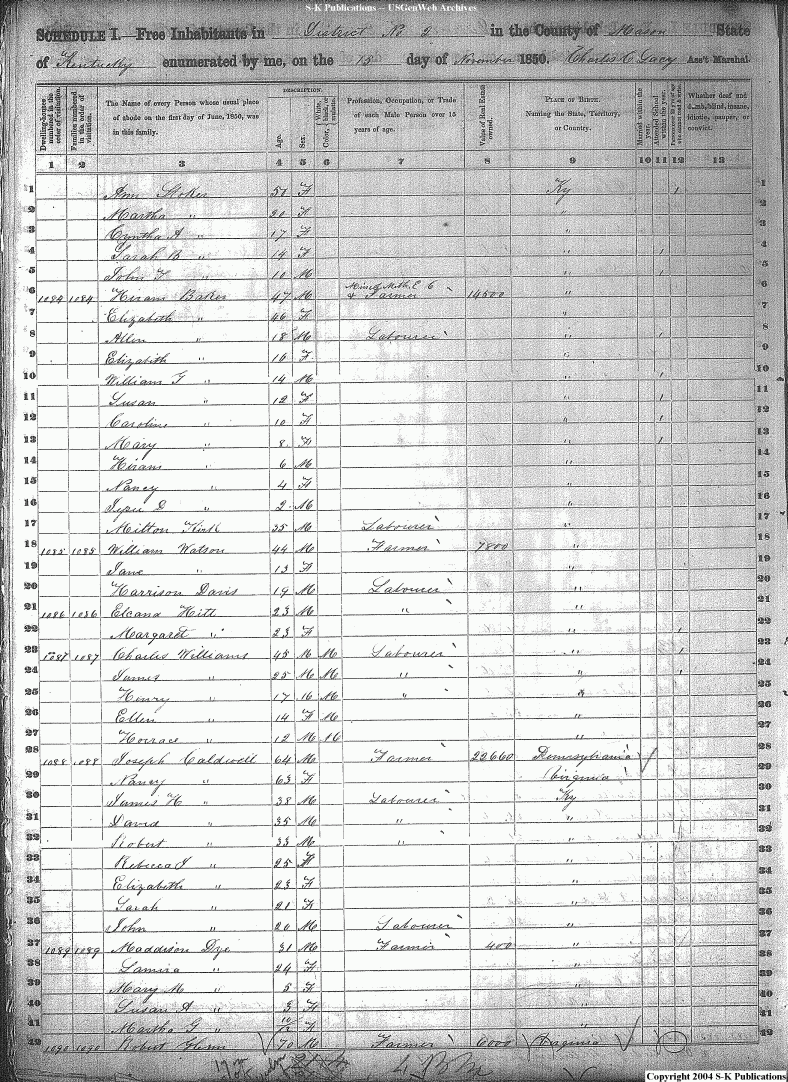 S-K Publications -- USGenWeb Archives
SCHEDULE I. Free Inhabitants in District No 2 in the County of Mason State
of Kentucky enumerated by me, on the 15 day of November 1850. Charles C Lacy Ass't Marshal.
Dwelling-houses numbered in the order of visitation.
Families numbered in the order of visitation.
The Name of every Person whose usual place of abode on the first day of June, 1850, was in this family.
DESCRIPTION.
Age.
Sex.
Color, White, black, or mulatto.
Profession, Occupation, or Trade of each Male Person over 15 years of age.
Value of Real Estate owned
PLACE OF BIRTH. Naming the State, Territory, or Country.
Married within the year.
Attended School within the year.
Whether deaf and dumb, blind, insane, idiotic, pauper, or convict.
1 2 3 4 5 6 7 8 9 10 11 12 13
1 Ann Stokes 50 F Ky / 1
2 Martha " 20 F " 2
3 Cyntha A " 17 F " 3
4 Sarah B " 14 F " / 4
5 John F " 10 M " / 5
6 1084 1084 Hiram Baker 47 M & Farmer 14500 " 6
7 Elizabeth " 46 F " 7
8 Allin " 18 M Labourer " / 8
9 Elizabeth " 16 F " 9
10 William G " 14 M " / 10
11 Susan " 12 F " / 11
12 Caroline " 10 F " / 12
13 Mary " 8 F " / 13
14 Hiram " 6 M 14
15 Nancy " 4 F " 15
16 D " 2 M " 16
17 Milton Kirk 35 M Labourer " 17
18 1085 1085 William Watson 44 M Farmer 7800 " 18
19 Jane " 13 F " 19
20 Harrison Davis 19 M Labourer " 20
21 1086 1086 Elcana Hitt 23 M " " 21
22 Margaret " 23 F " / 22
23 1087 1087 Charles Williams 45 M M Labourer " / 23
24 James " 25 M M " " / 24
25 Henry " 17 M M " " 25
26 Ellen " 14 F M " 26
27 Horrace " 12 M M " 27
28 1088 1088 Joseph Caldwell 64 M Farmer 22660 Pennsylvania 28
29 Nancy " 63 F Virginia 29
30 James H " 38 M Labourer Ky 30
31 David " 35 M " " 31
32 Robert " 33 M " " 32
33 Rebecca J " 25 F " 33
34 Elizabeth " 23 F " 34
35 Sarah " 21 F " 35
36 John " 20 M Labourer " 36
37 1089 1089 Maddison Dye 31 M Farmer 400 " 37
38 Lamira " 24 F " 38
39 Mary M " 5 F " 39
40 Susan A " 3 F " 40
41 Martha G " 10/12 F " 41
42 1090 1090 Robert Glenn 70 M Farmer 6000 Virginia 42
Copyright 2004 S-K Publications